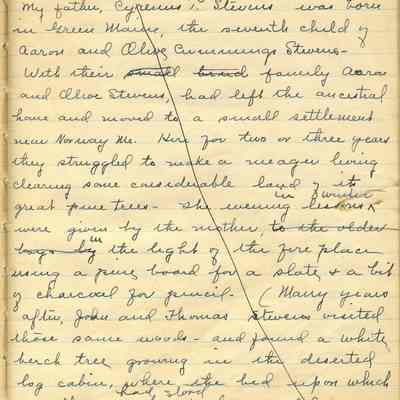 My father, Cyrenus K. Stevens was born
in Green Maine, the seventh child of
Aaron and Olive Cummings Stevens -
With their small brood family Aaron
and Olive Stevens, had left the ancestral
home and moved to a small settlement
near Norway Me. Here for two or three years
they struggled to make a meager living
clearing some considerable land of its
great pine trees - The evening lessons in winter
were given by the mother, to the older
boys by in the light of the fire place
using a pine board for a slate, & a bit
of charcoal for pencil - (Many years
after, John and Thomas Stevens visited
those same woods - and found a white
berch tree growing in the deserted
log cabin, where the bed upon which
had stood